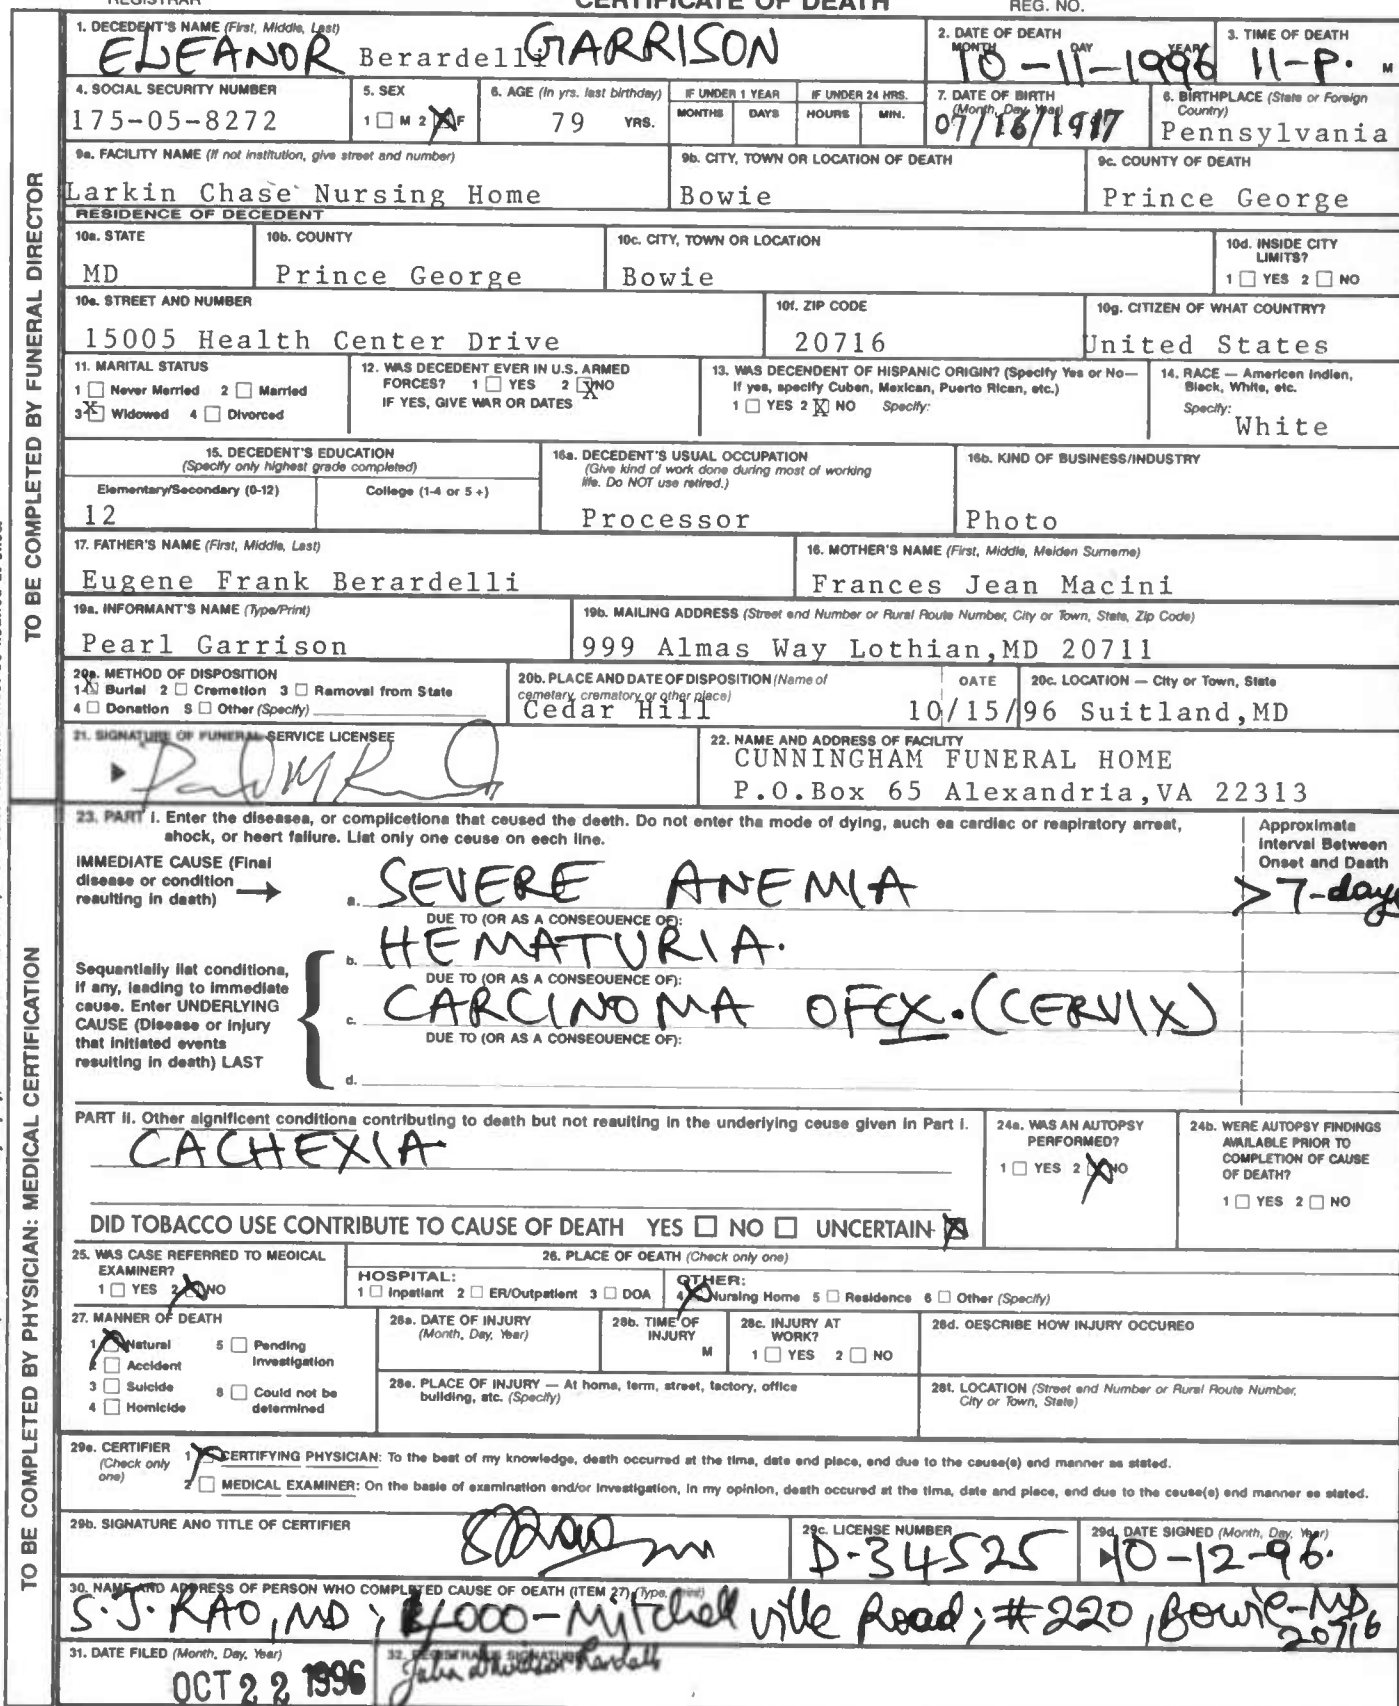 REGISTRAR CERTIFICATE OF DEATH REG. NO.
1. DECEDENT'S NAME (First, Middle, Last)
ELEANOR Berardelli GARRISON
2. DATE OF DEATH
MONTH DAY YEAR
10-11-1996
3. TIME OF DEATH
11-P. M
4. SOCIAL SECURITY NUMBER
175-05-8272
5. SEX
1 ☐ M 2 ☒ F
6. AGE (In yrs. last birthday)
79 YRS.
IF UNDER 1 YEAR
MONTHS DAYS
IF UNDER 24 HRS.
HOURS MIN.
7. DATE OF BIRTH
(Month, Day, Year)
07/16/1917
8. BIRTHPLACE (State or Foreign
Country)
Pennsylvania
9a. FACILITY NAME (If not institution, give street and number)
Larkin Chase Nursing Home
9b. CITY, TOWN OR LOCATION OF DEATH
Bowie
9c. COUNTY OF DEATH
Prince George
RESIDENCE OF DECEDENT
10a. STATE
MD
10b. COUNTY
Prince George
10c. CITY, TOWN OR LOCATION
Bowie
10d. INSIDE CITY
LIMITS?
1 ☐ YES 2 ☐ NO
10e. STREET AND NUMBER
15005 Health Center Drive
10f. ZIP CODE
20716
10g. CITIZEN OF WHAT COUNTRY?
United States
11. MARITAL STATUS
1 ☐ Never Married 2 ☐ Married
3 ☒ Widowed 4 ☐ Divorced
12. WAS DECEDENT EVER IN U.S. ARMED
FORCES? 1 ☐ YES 2 ☒ NO
IF YES, GIVE WAR OR DATES
13. WAS DECENDENT OF HISPANIC ORIGIN? (Specify Yes or No—
If yes, specify Cuban, Mexican, Puerto Rican, etc.)
1 ☐ YES 2 ☒ NO Specify:
14. RACE — American Indian,
Black, White, etc.
Specify:
White
15. DECEDENT'S EDUCATION
(Specify only highest grade completed)
Elementary/Secondary (0-12) College (1-4 or 5+)
12
16a. DECEDENT'S USUAL OCCUPATION
(Give kind of work done during most of working
life. Do NOT use retired.)
Processor
16b. KIND OF BUSINESS/INDUSTRY
Photo
17. FATHER'S NAME (First, Middle, Last)
Eugene Frank Berardelli
18. MOTHER'S NAME (First, Middle, Maiden Surname)
Frances Jean Macini
19a. INFORMANT'S NAME (Type/Print)
Pearl Garrison
19b. MAILING ADDRESS (Street and Number or Rural Route Number, City or Town, State, Zip Code)
999 Almas Way Lothian,MD 20711
20a. METHOD OF DISPOSITION
1 ☒ Burial 2 ☐ Cremation 3 ☐ Removal from State
4 ☐ Donation 5 ☐ Other (Specify)
20b. PLACE AND DATE OF DISPOSITION (Name of
cemetery, crematory or other place)
Cedar Hill
DATE
10/15/96
20c. LOCATION — City or Town, State
Suitland,MD
21. SIGNATURE OF FUNERAL SERVICE LICENSEE
22. NAME AND ADDRESS OF FACILITY
CUNNINGHAM FUNERAL HOME
P.O.Box 65 Alexandria,VA 22313
TO BE COMPLETED BY FUNERAL DIRECTOR
23. PART I. Enter the diseases, or complications that caused the death. Do not enter the mode of dying, such as cardiac or respiratory arrest,
shock, or heart failure. List only one cause on each line.
Approximate
Interval Between
Onset and Death
IMMEDIATE CAUSE (Final
disease or condition
resulting in death)
a. SEVERE ANEMIA > 7-days
DUE TO (OR AS A CONSEQUENCE OF):
b. HEMATURIA.
DUE TO (OR AS A CONSEQUENCE OF):
c. CARCINOMA OF CX. (CERVIX)
DUE TO (OR AS A CONSEQUENCE OF):
d.
Sequentially list conditions,
if any, leading to immediate
cause. Enter UNDERLYING
CAUSE (Disease or injury
that initiated events
resulting in death) LAST
PART II. Other significant conditions contributing to death but not resulting in the underlying cause given in Part I.
CACHEXIA
24a. WAS AN AUTOPSY
PERFORMED?
1 ☐ YES 2 ☒ NO
24b. WERE AUTOPSY FINDINGS
AVAILABLE PRIOR TO
COMPLETION OF CAUSE
OF DEATH?
1 ☐ YES 2 ☐ NO
DID TOBACCO USE CONTRIBUTE TO CAUSE OF DEATH YES ☐ NO ☐ UNCERTAIN ☒
25. WAS CASE REFERRED TO MEDICAL
EXAMINER?
1 ☐ YES 2 ☒ NO
26. PLACE OF DEATH (Check only one)
HOSPITAL:
1 ☐ Inpatient 2 ☐ ER/Outpatient 3 ☐ DOA
OTHER:
4 ☒ Nursing Home 5 ☐ Residence 6 ☐ Other (Specify)
27. MANNER OF DEATH
1 ☒ Natural 5 ☐ Pending
Investigation
2 ☐ Accident
3 ☐ Suicide 8 ☐ Could not be
determined
4 ☐ Homicide
28a. DATE OF INJURY
(Month, Day, Year)
28b. TIME OF
INJURY
M
28c. INJURY AT
WORK?
1 ☐ YES 2 ☐ NO
28d. DESCRIBE HOW INJURY OCCURED
28e. PLACE OF INJURY — At home, farm, street, factory, office
building, etc. (Specify)
28f. LOCATION (Street and Number or Rural Route Number,
City or Town, State)
29a. CERTIFIER
(Check only
one)
1 ☒ CERTIFYING PHYSICIAN: To the best of my knowledge, death occurred at the time, date and place, and due to the cause(s) and manner as stated.
2 ☐ MEDICAL EXAMINER: On the basis of examination and/or investigation, in my opinion, death occured at the time, date and place, and due to the cause(s) and manner as stated.
29b. SIGNATURE AND TITLE OF CERTIFIER
29c. LICENSE NUMBER
D-34525
29d. DATE SIGNED (Month, Day, Year)
10-12-96.
30. NAME AND ADDRESS OF PERSON WHO COMPLETED CAUSE OF DEATH (ITEM 27) (Type, Print)
S.J. RAO, MD; 14000-Mitchellville Road; #220, Bowie-MD
20716
31. DATE FILED (Month, Day, Year)
OCT 22 1996
32. REGISTRAR'S SIGNATURE
TO BE COMPLETED BY PHYSICIAN: MEDICAL CERTIFICATION